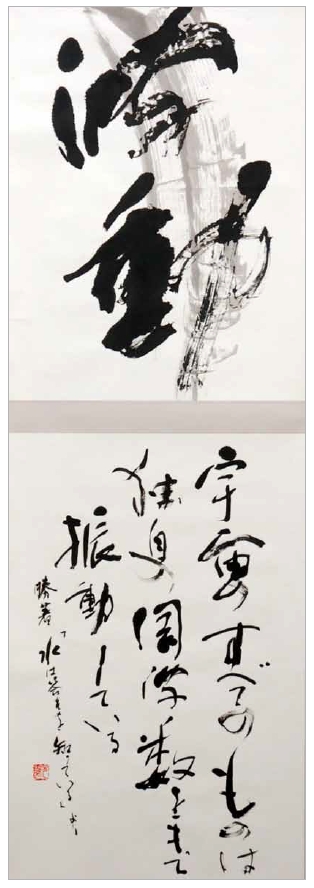 波動
宇宙のすべてのものは
独自の周波数をもって
振動している
勝著「水は答えを知っている」より